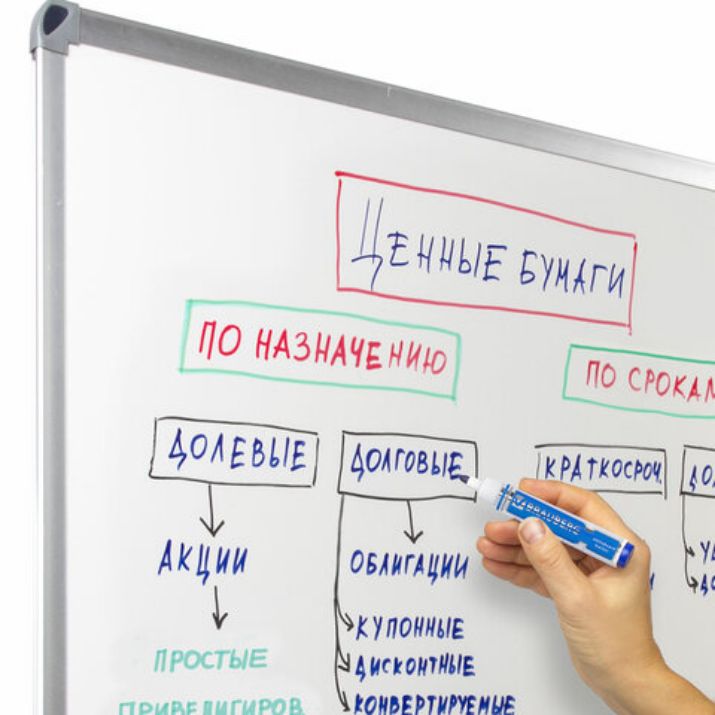 ЦЕННЫЕ БУМАГИ
ПО НАЗНАЧЕНИЮ
ПО СРОКАМ
ДОЛЕВЫЕ
ДОЛГОВЫЕ
КРАТКОСРОЧ.
АКЦИИ
ОБЛИГАЦИИ
ПРОСТЫЕ
КУПОННЫЕ
ДИСКОНТНЫЕ
ПРИВЕЛИГИРОВ
КОНВЕРТИРУЕМЫЕ
BRAUBERG